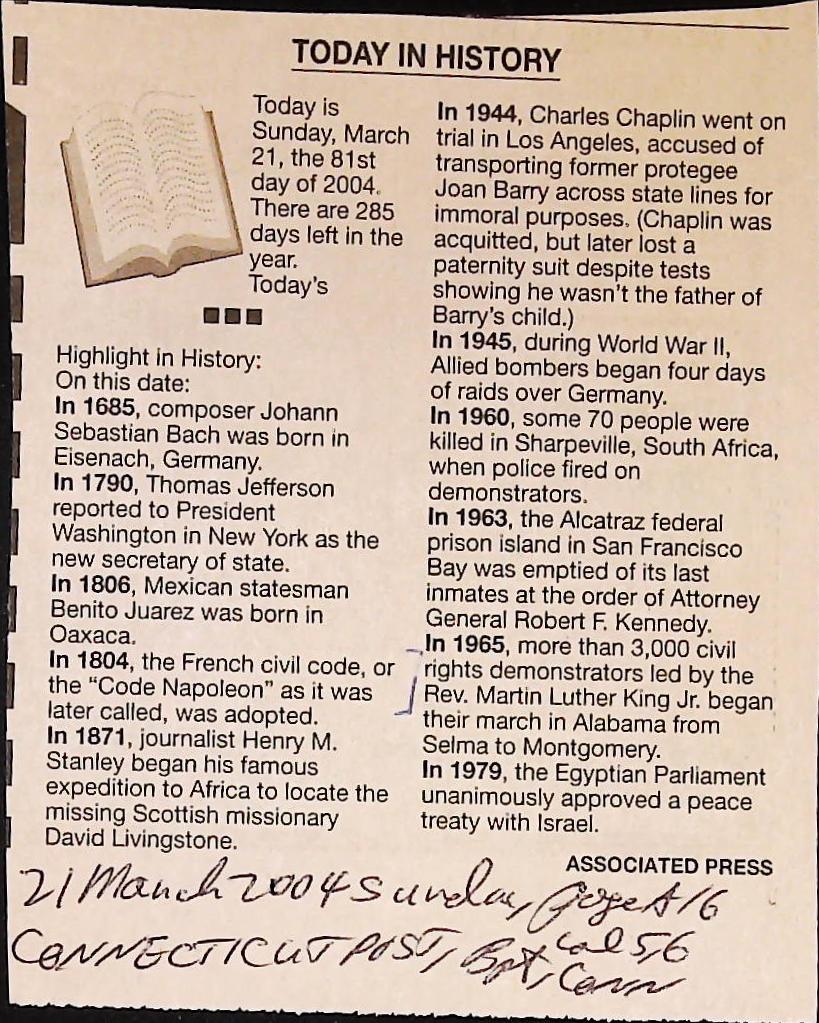 TODAY IN HISTORY
Today is
Sunday, March
21, the 81st
day of 2004.
There are 285
days left in the
year.
Today's
Highlight in History:
On this date:
In 1685, composer Johann
Sebastian Bach was born in
Eisenach, Germany.
In 1790, Thomas Jefferson
reported to President
Washington in New York as the
new secretary of state.
In 1806, Mexican statesman
Benito Juarez was born in
Oaxaca.
In 1804, the French civil code, or
the “Code Napoleon” as it was
later called, was adopted.
In 1871, journalist Henry M.
Stanley began his famous
expedition to Africa to locate the
missing Scottish missionary
David Livingstone.
In 1944, Charles Chaplin went on
trial in Los Angeles, accused of
transporting former protegee
Joan Barry across state lines for
immoral purposes. (Chaplin was
acquitted, but later lost a
paternity suit despite tests
showing he wasn't the father of
Barry's child.)
In 1945, during World War II,
Allied bombers began four days
of raids over Germany.
In 1960, some 70 people were
killed in Sharpeville, South Africa,
when police fired on
demonstrators.
In 1963, the Alcatraz federal
prison island in San Francisco
Bay was emptied of its last
inmates at the order of Attorney
General Robert F. Kennedy.
In 1965, more than 3,000 civil
rights demonstrators led by the
Rev. Martin Luther King Jr. began
their march in Alabama from
Selma to Montgomery.
In 1979, the Egyptian Parliament
unanimously approved a peace
treaty with Israel.
ASSOCIATED PRESS
21 March 2004 Sunday, page A16
CONNECTICUT POST, Bpt, Conn
Col 5,6